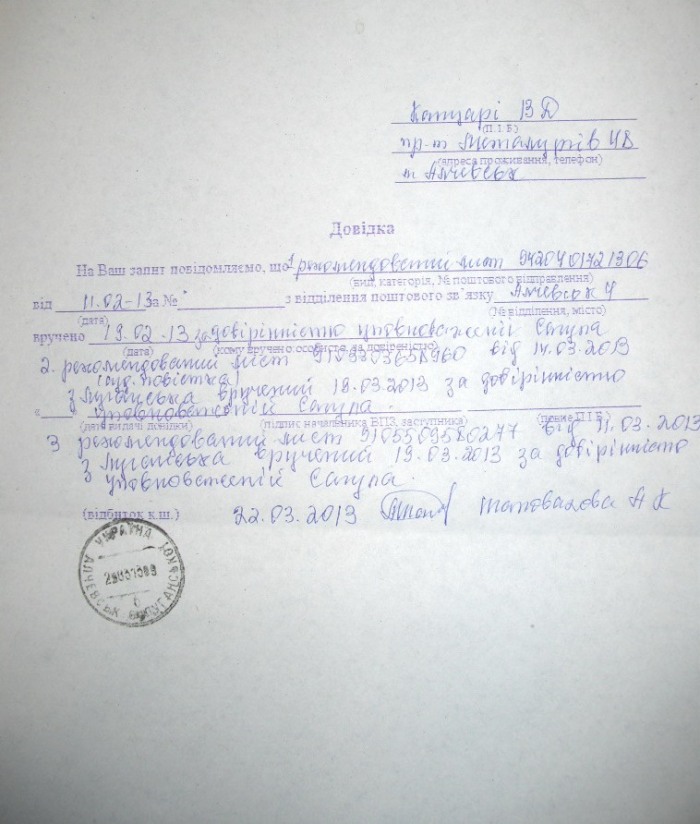 Кацарі В Д
(П.І.Б.)
пр-т Металургів 4В
(адреса проживання, телефон)
м Алчевськ
Довідка
На Ваш запит повідомляємо, що 1 рекомендований лист 9420401721306
(вид, категорія, № поштового відправлення)
від 11.02-13 за № з відділення поштового зв'язку Алчевськ 4
(дата) (№ відділення, місто)
вручено 19.02-13 за довірінністю уповноваженій Сагула
(дата) (кому вручено особисте, за довіреністю)
2. рекомендований лист 9109303658960 від 14.03-2013
(суд. повістка)
з Луганська вручений 18.03.2013 за довірінністю
« уповноваженій Сагула.
(дата видачі довідки) (підпис начальника ВПЗ, заступника) (повне П.І.Б.)
3 рекомендований лист 9105509580277 від 11.03.2013
з Луганська вручений 19.03.2013 за довірінністю
уповноваженій Сагула.
(відбиток к.ш.) 22.03.2013 А К
УКРАЇНА
АЛЧЕВСЬК